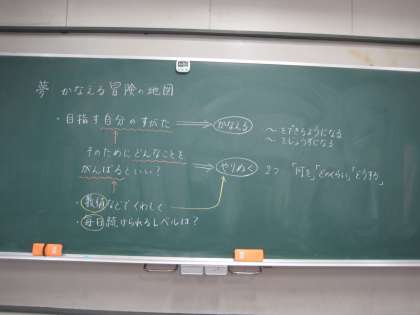 夢 かなえる冒険の地図
・目指す自分のすがた ⟹ かなえる
～ができるようになる
～じょうずになる
そのためにどんなことを
がんばるといい? ⟹ やりぬく 2つ 「何を」「どのくらい」「どうする」
・数値などでくわしく
・毎日続けられるレベルは?